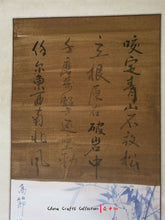 咬定青山不放松
立根原在破岩中
千磨萬擊還堅勁
任尔東西南北風
China Crafts Collection